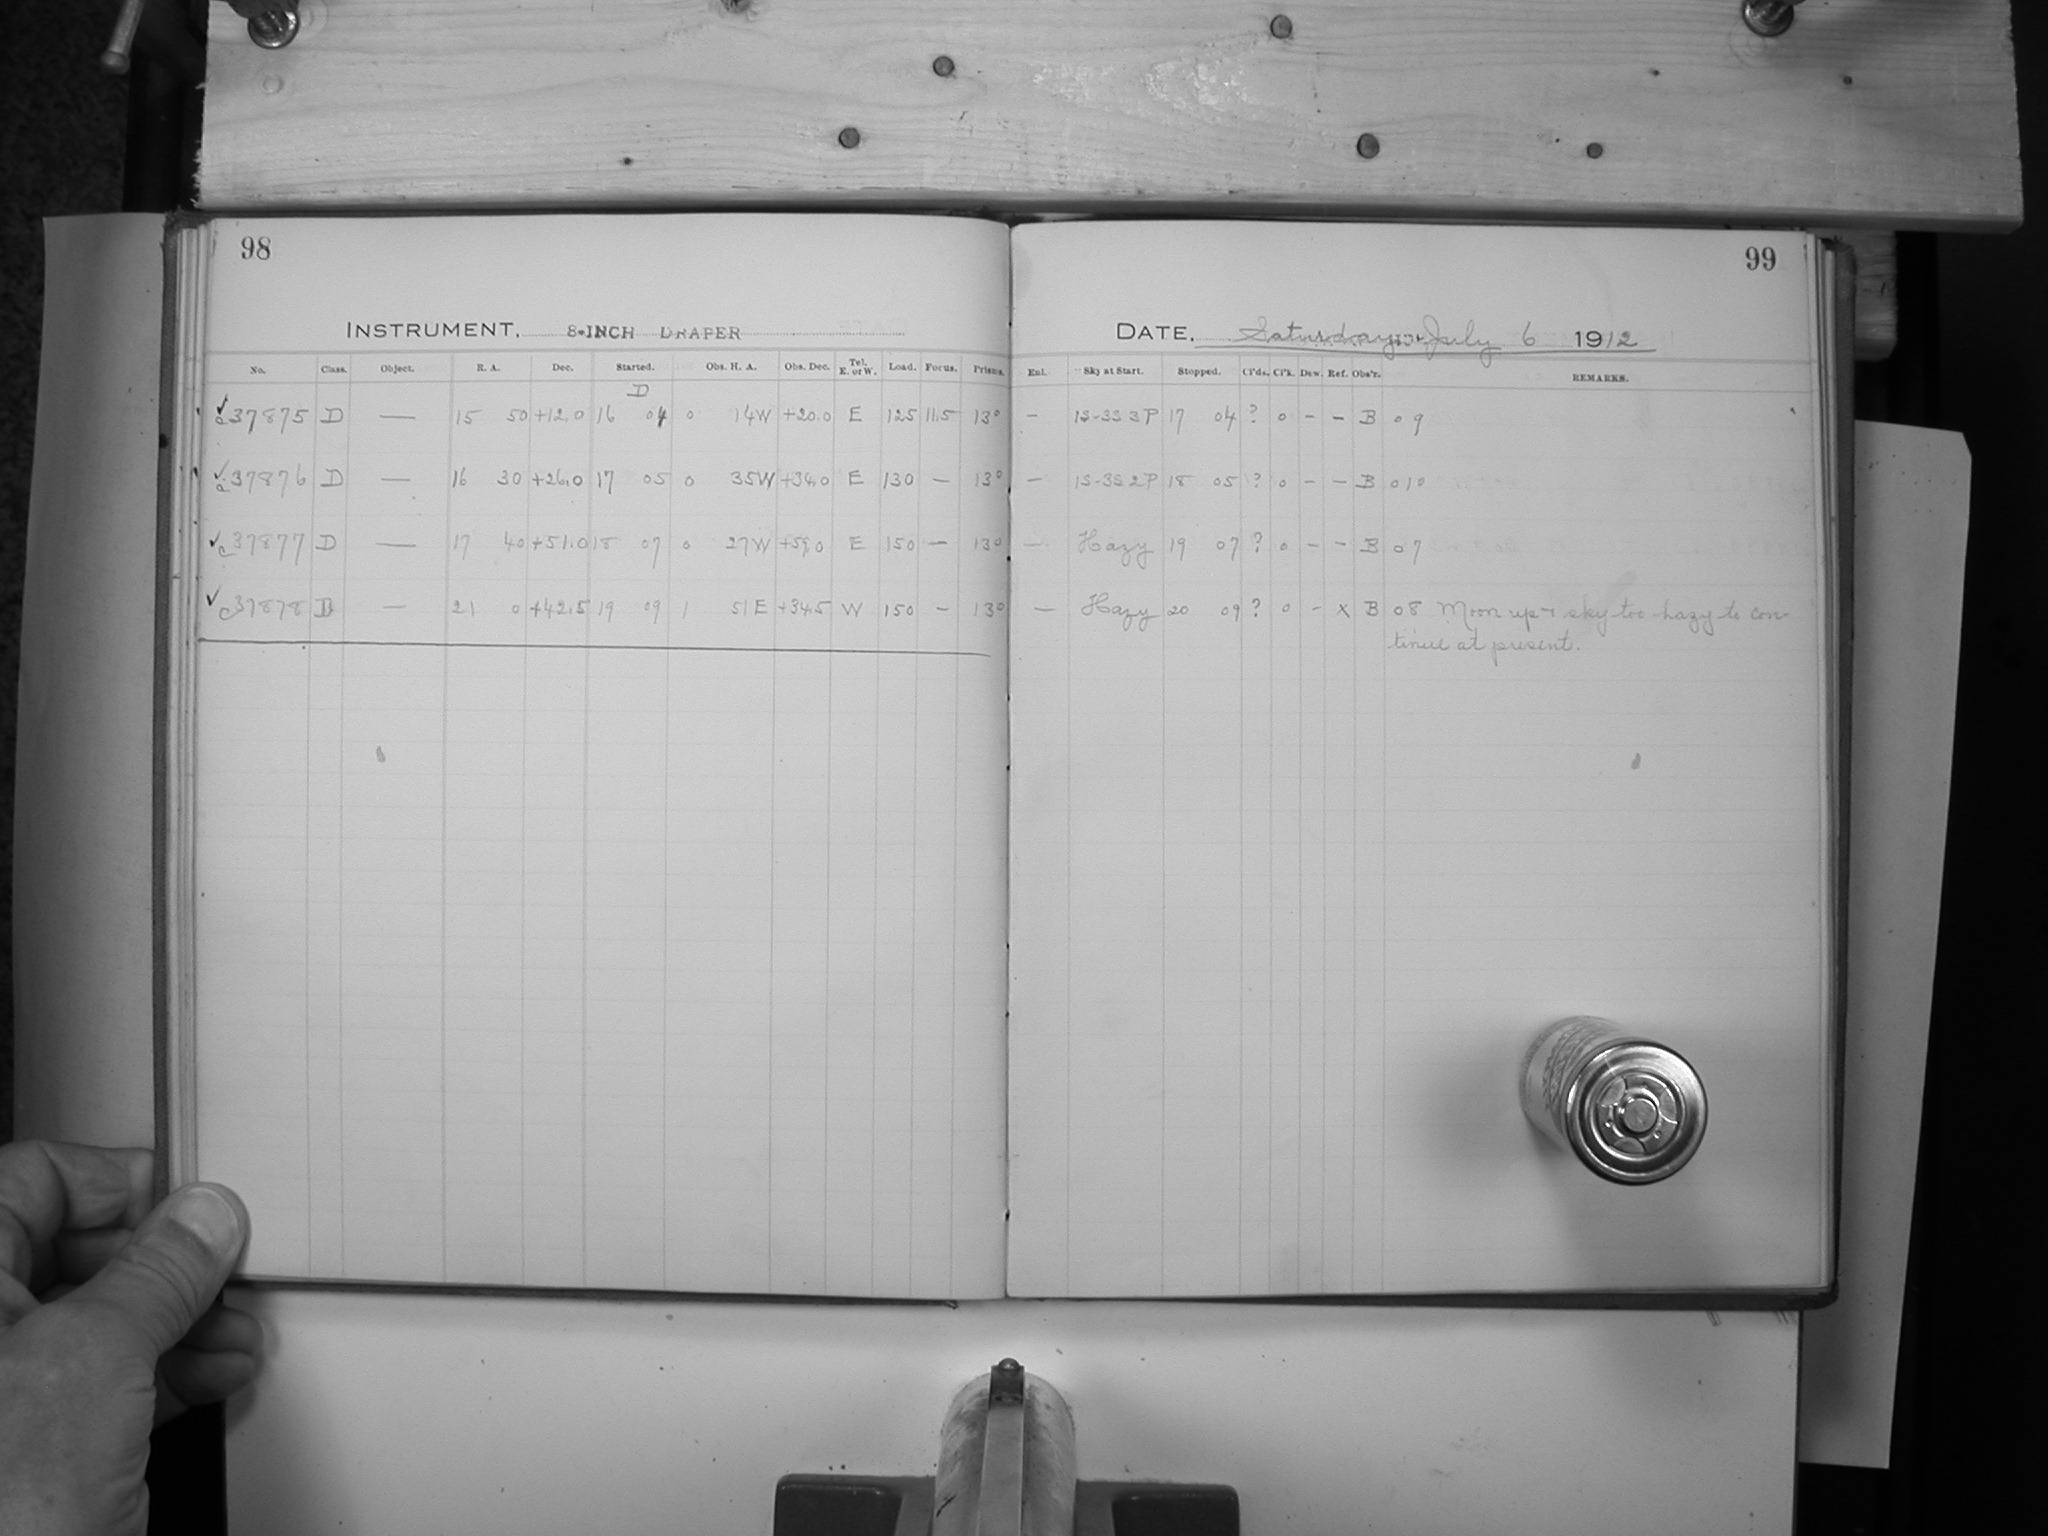 98
INSTRUMENT, 8-INCH DRAPER
No. Class. Object. R. A. Dec. Started. Obs. H. A. Obs. Dec. Tel. E. or W. Load. Focus. Prisms.
D
✓ c 37875 D — 15 50 +12.0 16 04 0 14W +20.0 E 125 11.5 13°
✓ c 37876 D — 16 30 +26.0 17 05 0 35W +34.0 E 130 — 13°
✓ c 37877 D — 17 40 +51.0 18 07 0 27W +59.0 E 150 — 13°
✓ c 37878 D — 21 0 +42.5 19 09 1 51E +34.5 W 150 – 13°
99
DATE, Saturday July 6 1912
Enl. Sky at Start. Stopped. Cl'ds. Cl'k. Dew. Ref. Obs'r. REMARKS.
– 1S-3S 3P 17 04 ? 0 – – B 09
– 1S-3S 2P 18 05 ? 0 – – B 010
— Hazy 19 07 ? 0 – – B 07
— Hazy 20 09 ? 0 – X B 08 Moon up + sky too hazy to con-
tinue at present.